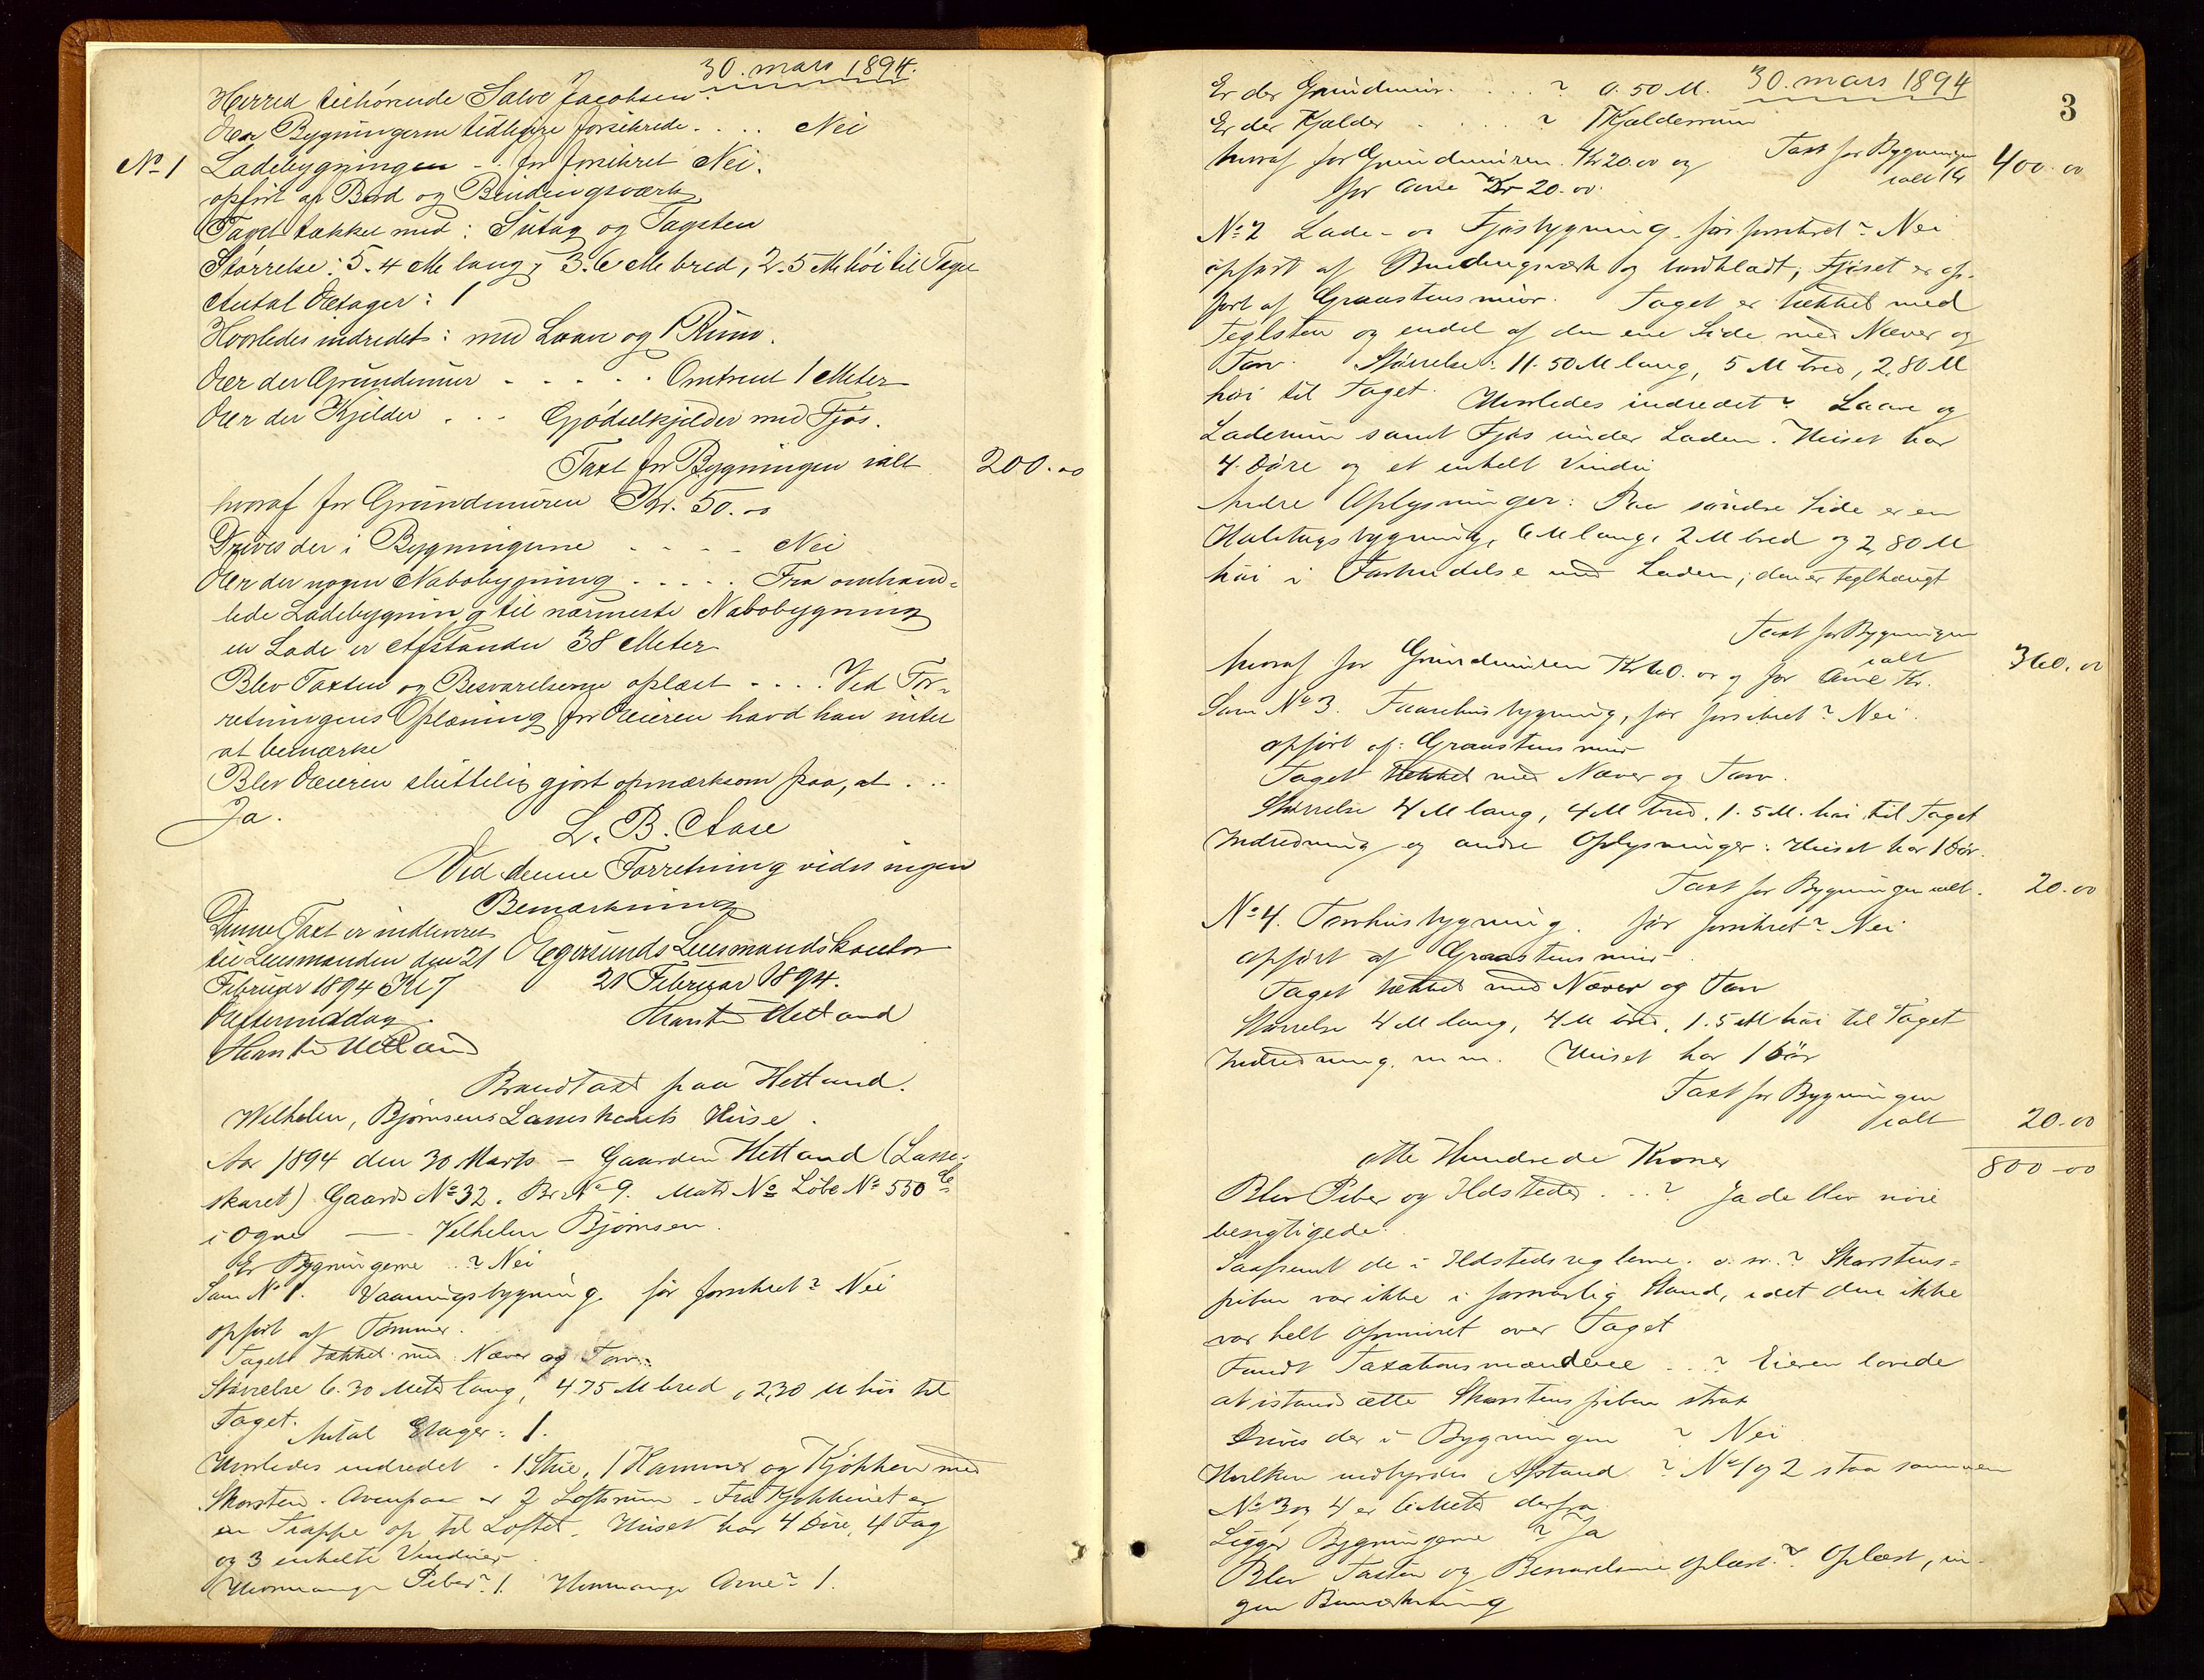 30. mars 1894.
Herred tilhørende Salve Jacobsen
Er Bygningerne tidligere forsikrede. . . . Nei
No 1 Ladebygningen - før forsikret Nei.
opført af Bord og Bindingsværk
Taget tækket med: Sutag og Tagsten
Størrelse: 5.4 M lang, 3.6 M bred, 2.5 M høi til Taget
Antal Etager: 1
Hvorledes indredet: med Laave og 1 Rum.
Er der Grundmur - - - - - Omtrent 1 Meter
Er der Kjelder . . - Gjødselkjelder med Fjøs.
Taxt for Bygningen ialt 200.00
hvoraf for Grundmuren Kr. 50.00
Drives der i Bygningerne - - - - Nei
Er der nogen Nabobygning - . - . . Fra omhand-
lede Ladebygning til nærmeste Nabobygning
en Lade er Afstanden 38 Meter
Blev Taxten og Besvarelserne oplæst - . . . Ved For-
retningens Oplæsning for Eieren havd han intet
at bemærke
Blev Eieren sluttelig gjort opmærksom paa, at . . -
Ja.
L. B. Aase
Ved denne Forretning vides ingen
Bemærkning
Denne Taxt er indleveret
til Lensmanden den 21
Februar 1894 Kl 7
Eftermiddag.
Egersunds Lensmandskontor
21 Februar 1894.
Hetland
Hetland
Brandtaxt paa Hetland.
Wilhelm, Bjørnsens Lasseskarets Huse.
Aar 1894 den 30 Marts - Gaarden Hetland (Lasse-
skaret) Gaards No 32. Br No 9. Matr No Løbe No 550 b
i Ogne — Velhelm Bjørnsen.
Er Bygningerne . . ? Nei
Som No 1. Vaaningsbygning før forsikret? Nei
opført af Tømmer.
Taget tækket med Næver og Torv.
Størrelse 6.30 Meter lang, 4.75 M bred, 2,30 M høi til
Taget. Antal Etager: 1.
Hvorledes indredet - 1 Stue, 1 Kammer og Kjøkken med
Skorsten. Ovenpaa er 2 Loftsrum - Fra Kjøkkenet er
en Trappe op til Loftet. Huset har 4 Døre, 4 Fag
og 3 enkelte Vinduer
Hvormange Piber? 1. Hvormange Arne? 1.
30. mars 1894
3
Er der Grundmur. . . . ? 0.50 M.
Er der Kjælder . . . . ? 1 Kjælderrum
hvoraf for Grundmuren Kr 20.00 og Taxt for Bygningen
for Arne Kr 20.00. ialt Kr 400.00
No 2 Lade- og Fjøsbygning, før forsikret? Nei
opført af Bindingsværk og bordklædt, Fjøset er op-
ført af Graastensmur. Taget er tækket med
Teglsten og endel af den ene Side med Næver og
Torv. Størrelse: 11.50 M lang, 5 M bred, 2,80 M
høi til Taget. Hvorledes indredet? Laave og
Laderum samt Fjøs under Laden. Huset har
4 Døre og et enkelt Vindu
Andre Oplysninger: Paa søndre Side er en
Halvtagsbygning, 6 M lang, 2 M bred og 2,80 M
høi i Forbindelse med Laden; den er teglhængt
Taxt for Bygningen
ialt 360.00
hvoraf for Grundmuren Kr 60.00 og for Arne Kr.
Som No 3. Faarehusbygning, før forsikret? Nei.
opført af: Graastens mur
Taget tækket med Næver og Torv.
Størrelse 4 M lang, 4 M bred, 1.5 M. høi til Taget
Indredning og andre Oplysninger: Huset har 1 Dør.
Taxt for Bygningen ialt. 20.00
No 4. Torvhusbygning. før forsikret? Nei
opført af Graastens mur.
Taget tækket med Næver og Torv
Størrelse 4 M lang, 4 M bred, 1.5 M høi til Taget
Indredning m.m. Huset har 1 Dør
Taxt for Bygningen
ialt 20.00
otte Hundrede Kroner 800-00
Blev Piber og Ildsteder . . . ? Ja de blev nøie
besigtigede.
Saafremt de i Ildstedsreglerne. o. sv. ? Skorstens-
piben var ikke i forsvarlig Stand, idet den ikke
var helt opmuret over Taget
Fandt Taxationsmændene . . ? Eieren lovede
at istandsætte Skorstenspiben strax
Drives der i Bygningen ? Nei
Hvilken indbyrdes Afstand ? No 1 og 2 staa sammen
No 3 og 4 er 6 Meter derfra
Ligger Bygningerne ? Ja
Blev Taxten og Besvarelserne oplæst? Oplæst, in-
gen Bemærkning